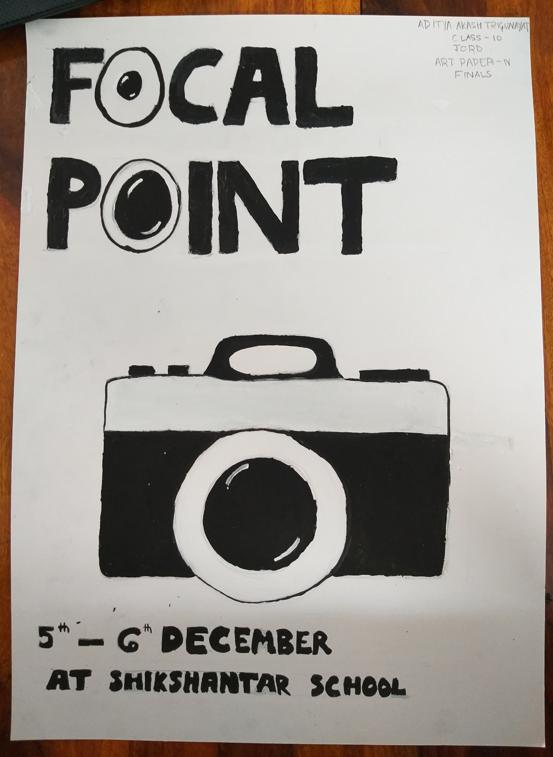 ADITYA AKASH TRIGUNAYAT
CLASS-10
JORD
ART PAPER-IV
FINALS
FOCAL
POINT
5th - 6th DECEMBER
AT SHIKSHANTAR SCHOOL